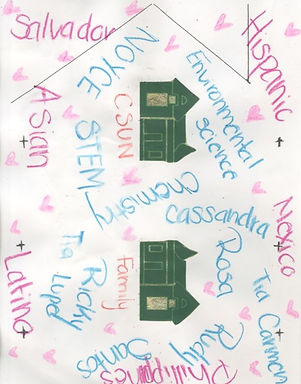 Salvador
NOYCE
Hispanic
Environmental
science
Asian
CSUN
STEM
Chemistry
Cassandra
Mexico
Latino
Tia Lupe
Ricky
Family
Rosa
Rudy
Tia Carmen
Philippines